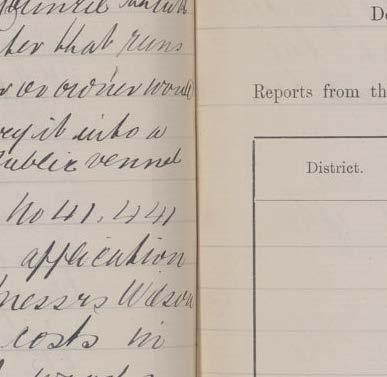 ter that runs
or or owner would
vey it into a
Public vennel
No 41, 441
application
messrs Wilson
costs in
De
Reports from th
District.